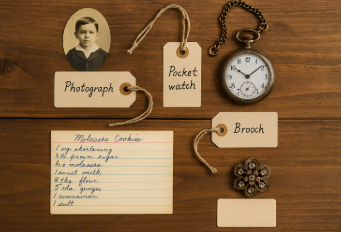 Photograph
Pocket
watch
Brooch
Molasses Cookies
1 shortening
brown sugar
molasses
milk
4 flour
5 ginger
1 cinnamon
1 salt